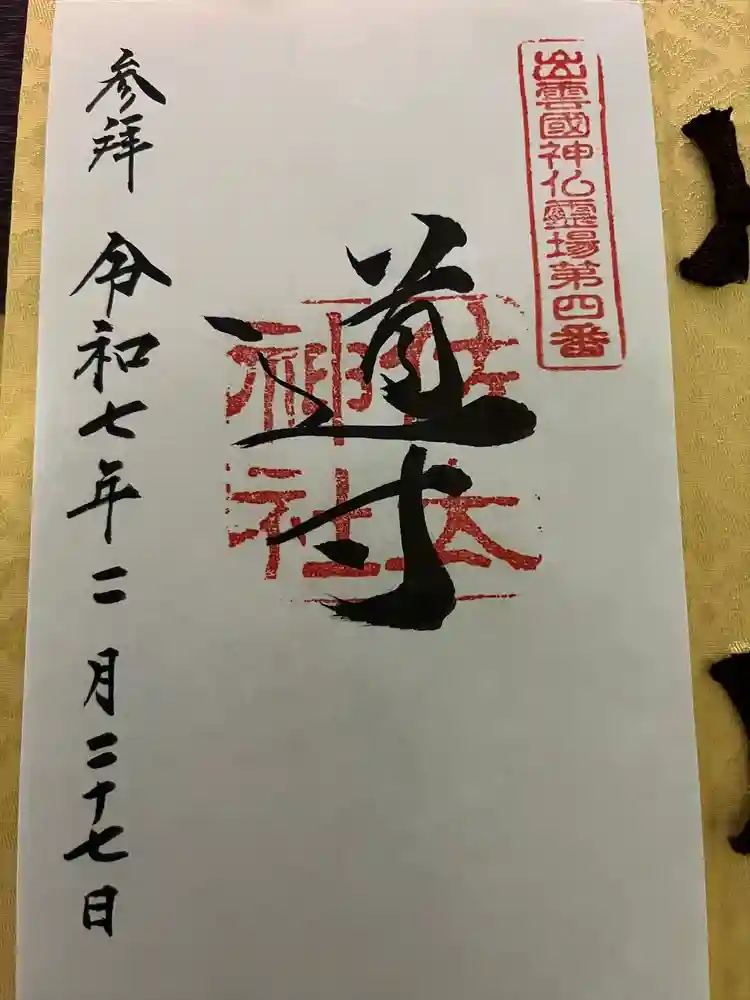 出雲國神仏霊場第四番
導
佐太
神社
参拜 令和七年二月二十七日